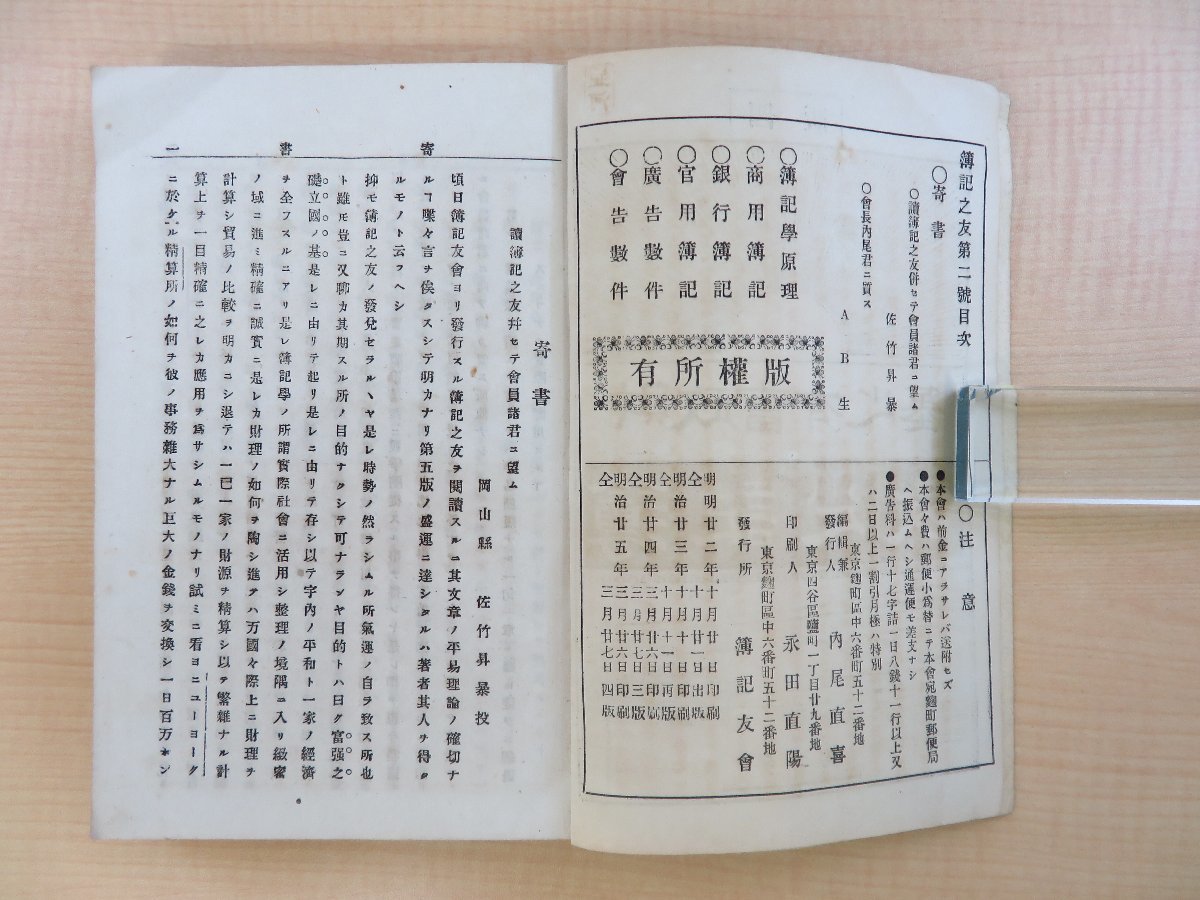 簿記之友第二號目次
○寄書
○讀簿記之友併セテ會員諸君ニ望ム
佐竹昇暴
○會長內尾君ニ質ス
AB生
○簿記學原理
○商用簿記
○銀行簿記
○官用簿記
○廣告數件
○會告數件
有所權版
○注意
●本會ハ前金ニアラサレバ送附セズ
●本會々費ハ郵便小爲替ニテ本會宛麹町郵便局
ヘ振込ムヘシ通運便モ差支ナシ
●廣告料ハ一行十七字詰一日八錢十一行以上又
ハ二日以上一割引月極ハ特別
東京麹町區中六番町五十二番地
編輯兼發行人 內尾直喜
東京四谷區鹽町一丁目廿九番地
印刷人 永田直陽
東京麹町區中六番町五十二番地
發行所 簿記友會
明治廿二年十月廿一日印刷
仝 十月廿二日出版
明治廿三年十月十一日印刷
仝 十月十一日再版
明治廿四年三月廿六日印刷
仝 三月廿七日三版
明治廿五年三月廿六日印刷
仝 三月廿七日四版
寄書
讀簿記之友幷セテ會員諸君ニ望ム
岡山縣 佐竹昇暴投
頃日簿記友會ヨリ發行スル簿記之友ヲ閱讀スルニ其文章ノ平易理論ノ確切ナ
ルコ喋々言ヲ俟タスシテ明カナリ第五版ノ盛運ニ達シタルハ著者其人ヲ得タ
ルモノト云フヘシ
抑モ簿記之友ノ發兌セラルヽヤ是レ時勢ノ然ラシムル所氣運ノ自ラ致ス所也
ト雖モ豈ニ又聊カ其期スル所ノ目的ナクシテ可ナランヤ目的トハ曰ク富强之
礎立國ノ基是レニ由リテ起リ是レニ由リテ存シ以テ宇內ノ平和ト一家ノ經濟
ヲ全フスルニアリ是レ簿記學ノ所謂實際社會ニ活用シ整理ノ境隅ニ入リ緻密
ノ域ニ進ミ精確ニ誠實ニ是レカ財理ノ如何ヲ陶シ進テハ万國々際上ニ財理ヲ
計算シ貿易ノ比較ヲ明カニシ退テハ一己一家ノ財源ヲ精算シ以テ繁雜ナル計
算上ヲ一目精確ニ之レカ應用ヲ爲サシムルモノナリ試ミニ看ヨニユーヨーク
ニ於ケル精算所ノ如何ヲ彼ノ事務雜大ナル巨大ノ金錢ヲ交換シ一日百万ポン
寄書 一